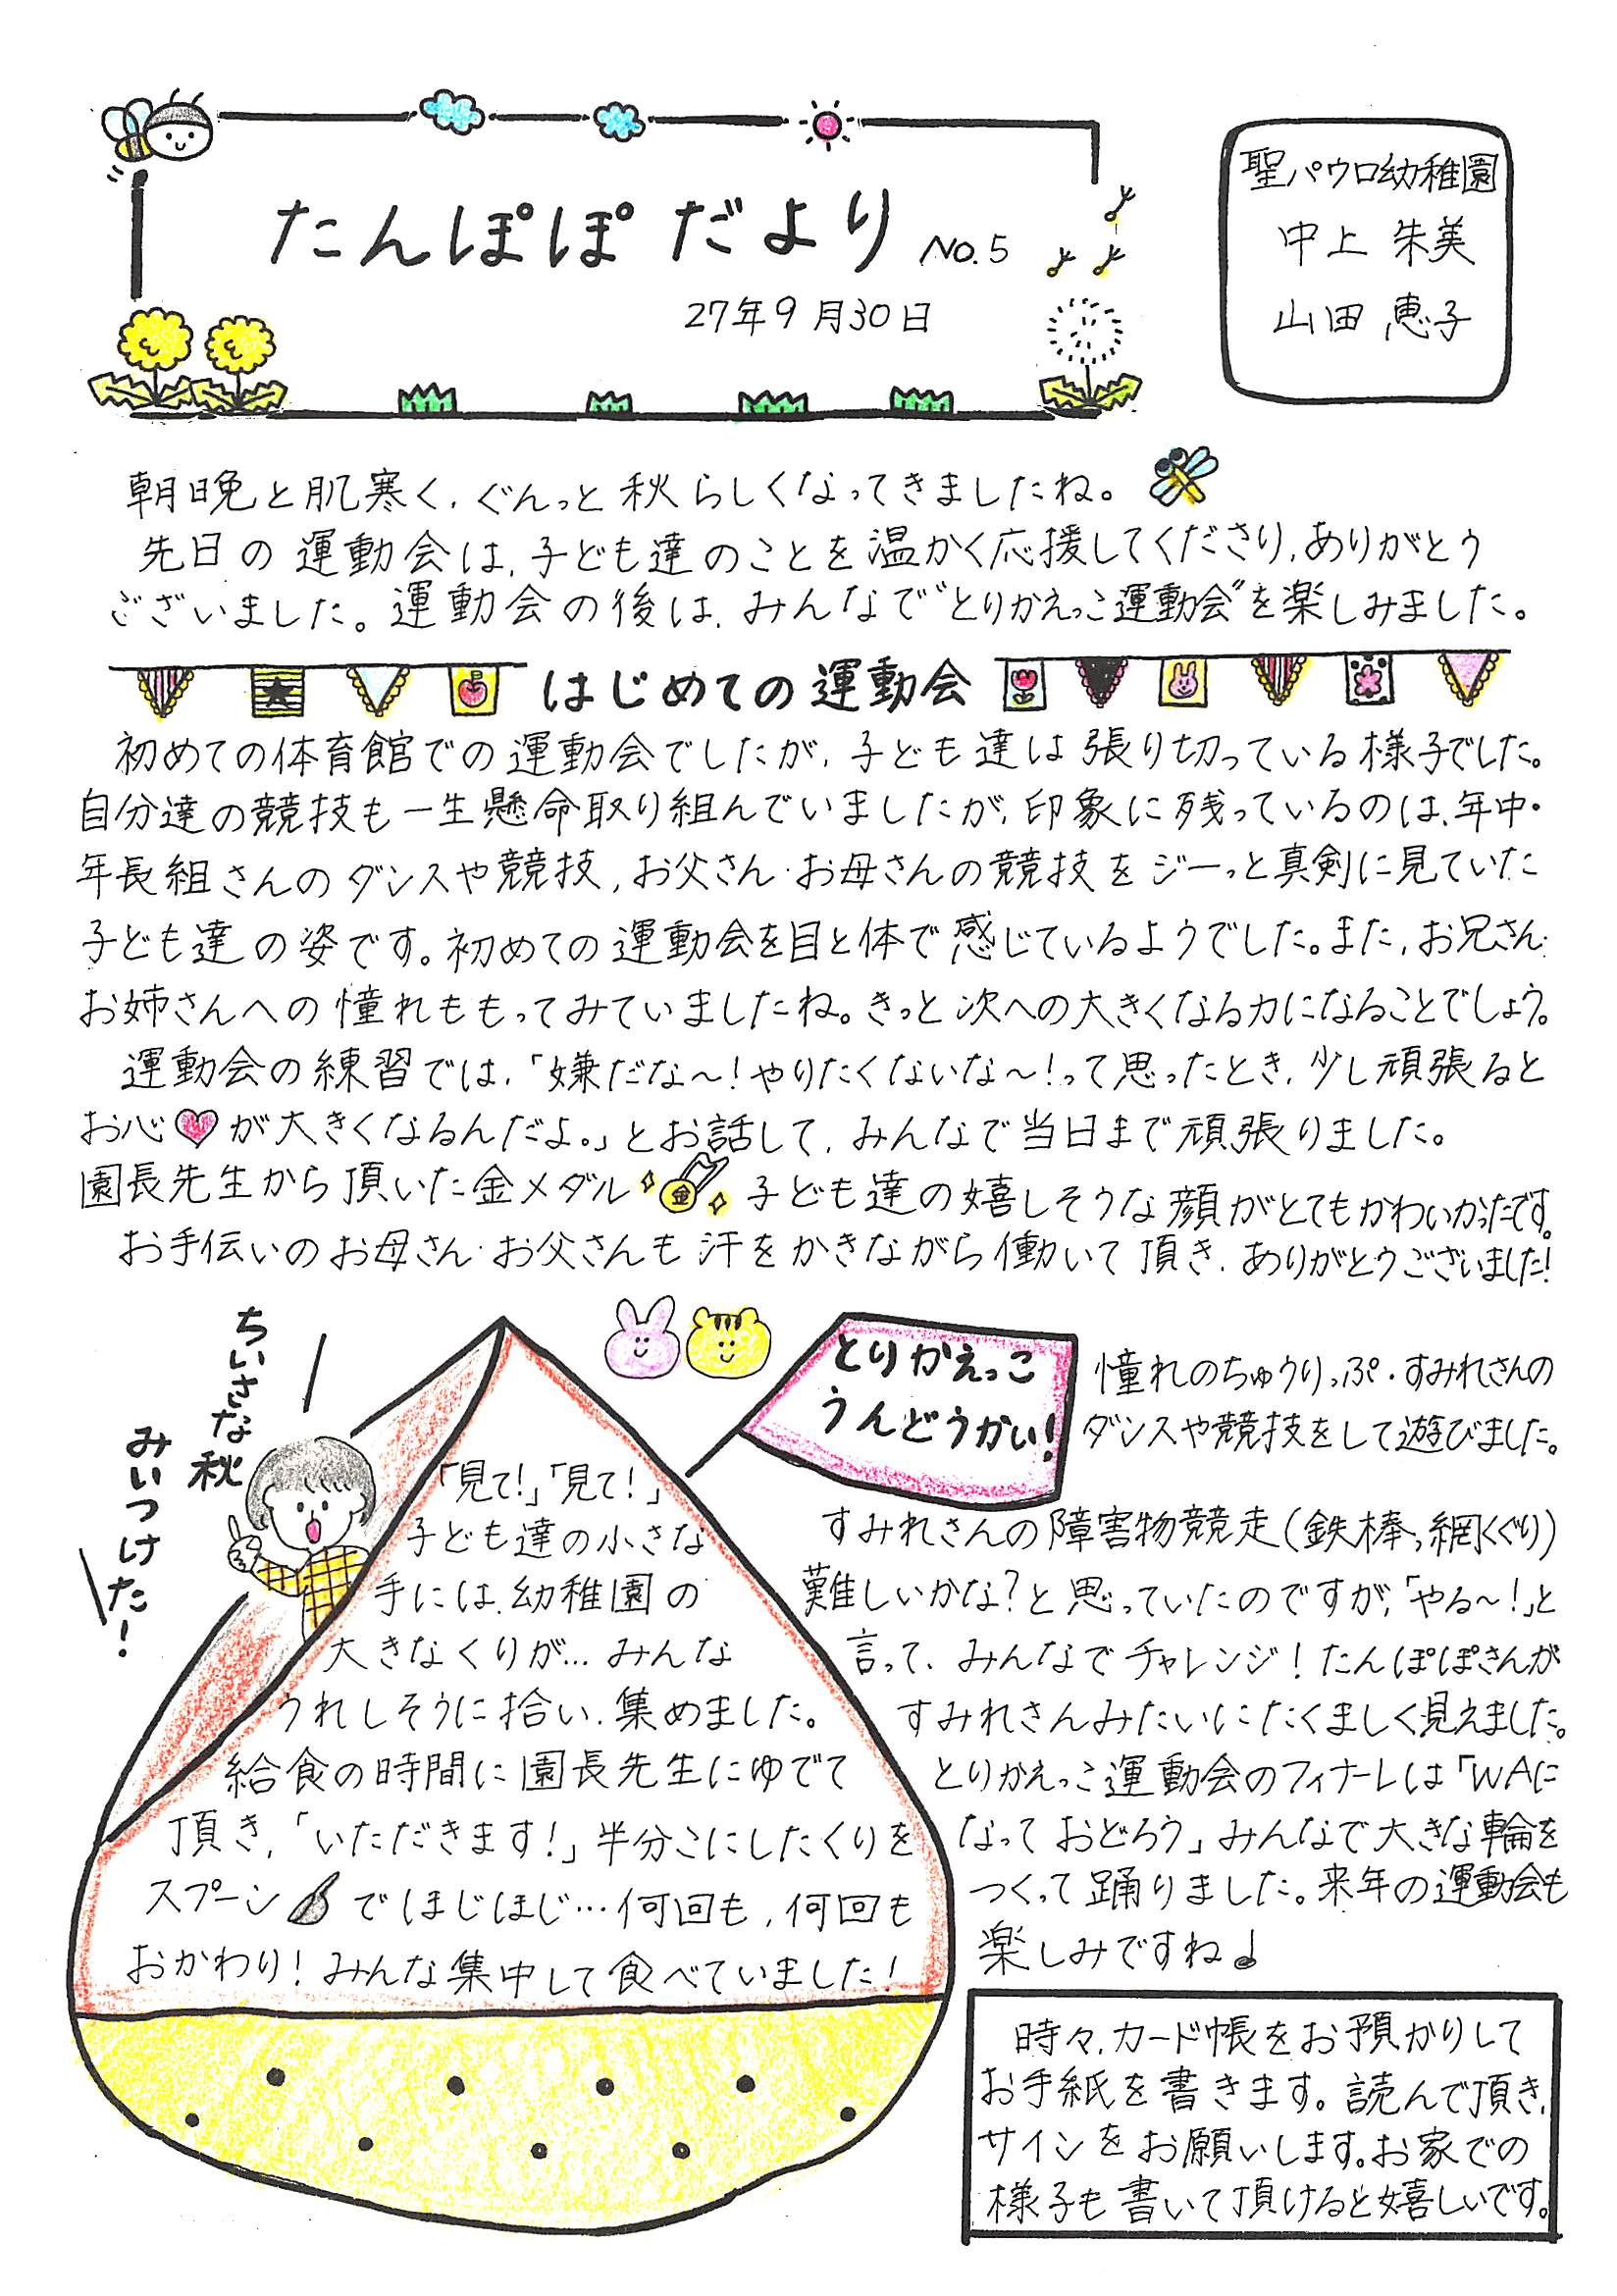 たんぽぽだより No.5
27年9月30日
聖パウロ幼稚園
中上 朱美
山田 恵子
朝晩と肌寒く、ぐんっと秋らしくなってきましたね。
先日の運動会は、子ども達のことを温かく応援してくださり、ありがとう
ございました。運動会の後は、みんなで“とりかえっこ運動会”を楽しみました。
はじめての運動会
初めての体育館での運動会でしたが、子ども達は張り切っている様子でした。
自分達の競技も一生懸命取り組んでいましたが、印象に残っているのは、年中・
年長組さんのダンスや競技、お父さん・お母さんの競技をジーっと真剣に見ていた
子ども達の姿です。初めての運動会を目と体で感じているようでした。また、お兄さん・
お姉さんへの憧れももってみていましたね。きっと次への大きくなる力になることでしょう。
運動会の練習では、「嫌だな〜!やりたくないな〜!って思ったとき、少し頑張ると
お心♥が大きくなるんだよ。」とお話して、みんなで当日まで頑張りました。
園長先生から頂いた金メダル 金 子ども達の嬉しそうな顔がとてもかわいかったです。
お手伝いのお母さん・お父さんも汗をかきながら働いて頂き、ありがとうございました!
ちいさな秋
みいつけた!
「見て!」「見て!」
子ども達の小さな
手には、幼稚園の
大きなくりが…みんな
うれしそうに拾い、集めました。
給食の時間に園長先生にゆでて
頂き、「いただきます!」半分こにしたくりを
スプーンでほじほじ…何回も、何回も
おかわり!みんな集中して食べていました!
とりかえっこ
うんどうかい!
憧れのちゅうりっぷ・すみれさんの
ダンスや競技をして遊びました。
すみれさんの障害物競走(鉄棒,網くぐり)
難しいかな?と思っていたのですが、「やる〜!」と
言って、みんなでチャレンジ!たんぽぽさんが
すみれさんみたいにたくましく見えました。
とりかえっこ運動会のフィナーレは「WAに
なっておどろう」みんなで大きな輪を
つくって踊りました。来年の運動会も
楽しみですね♩
時々、カード帳をお預かりして
お手紙を書きます。読んで頂き、
サインをお願いします。お家での
様子も書いて頂けると嬉しいです。